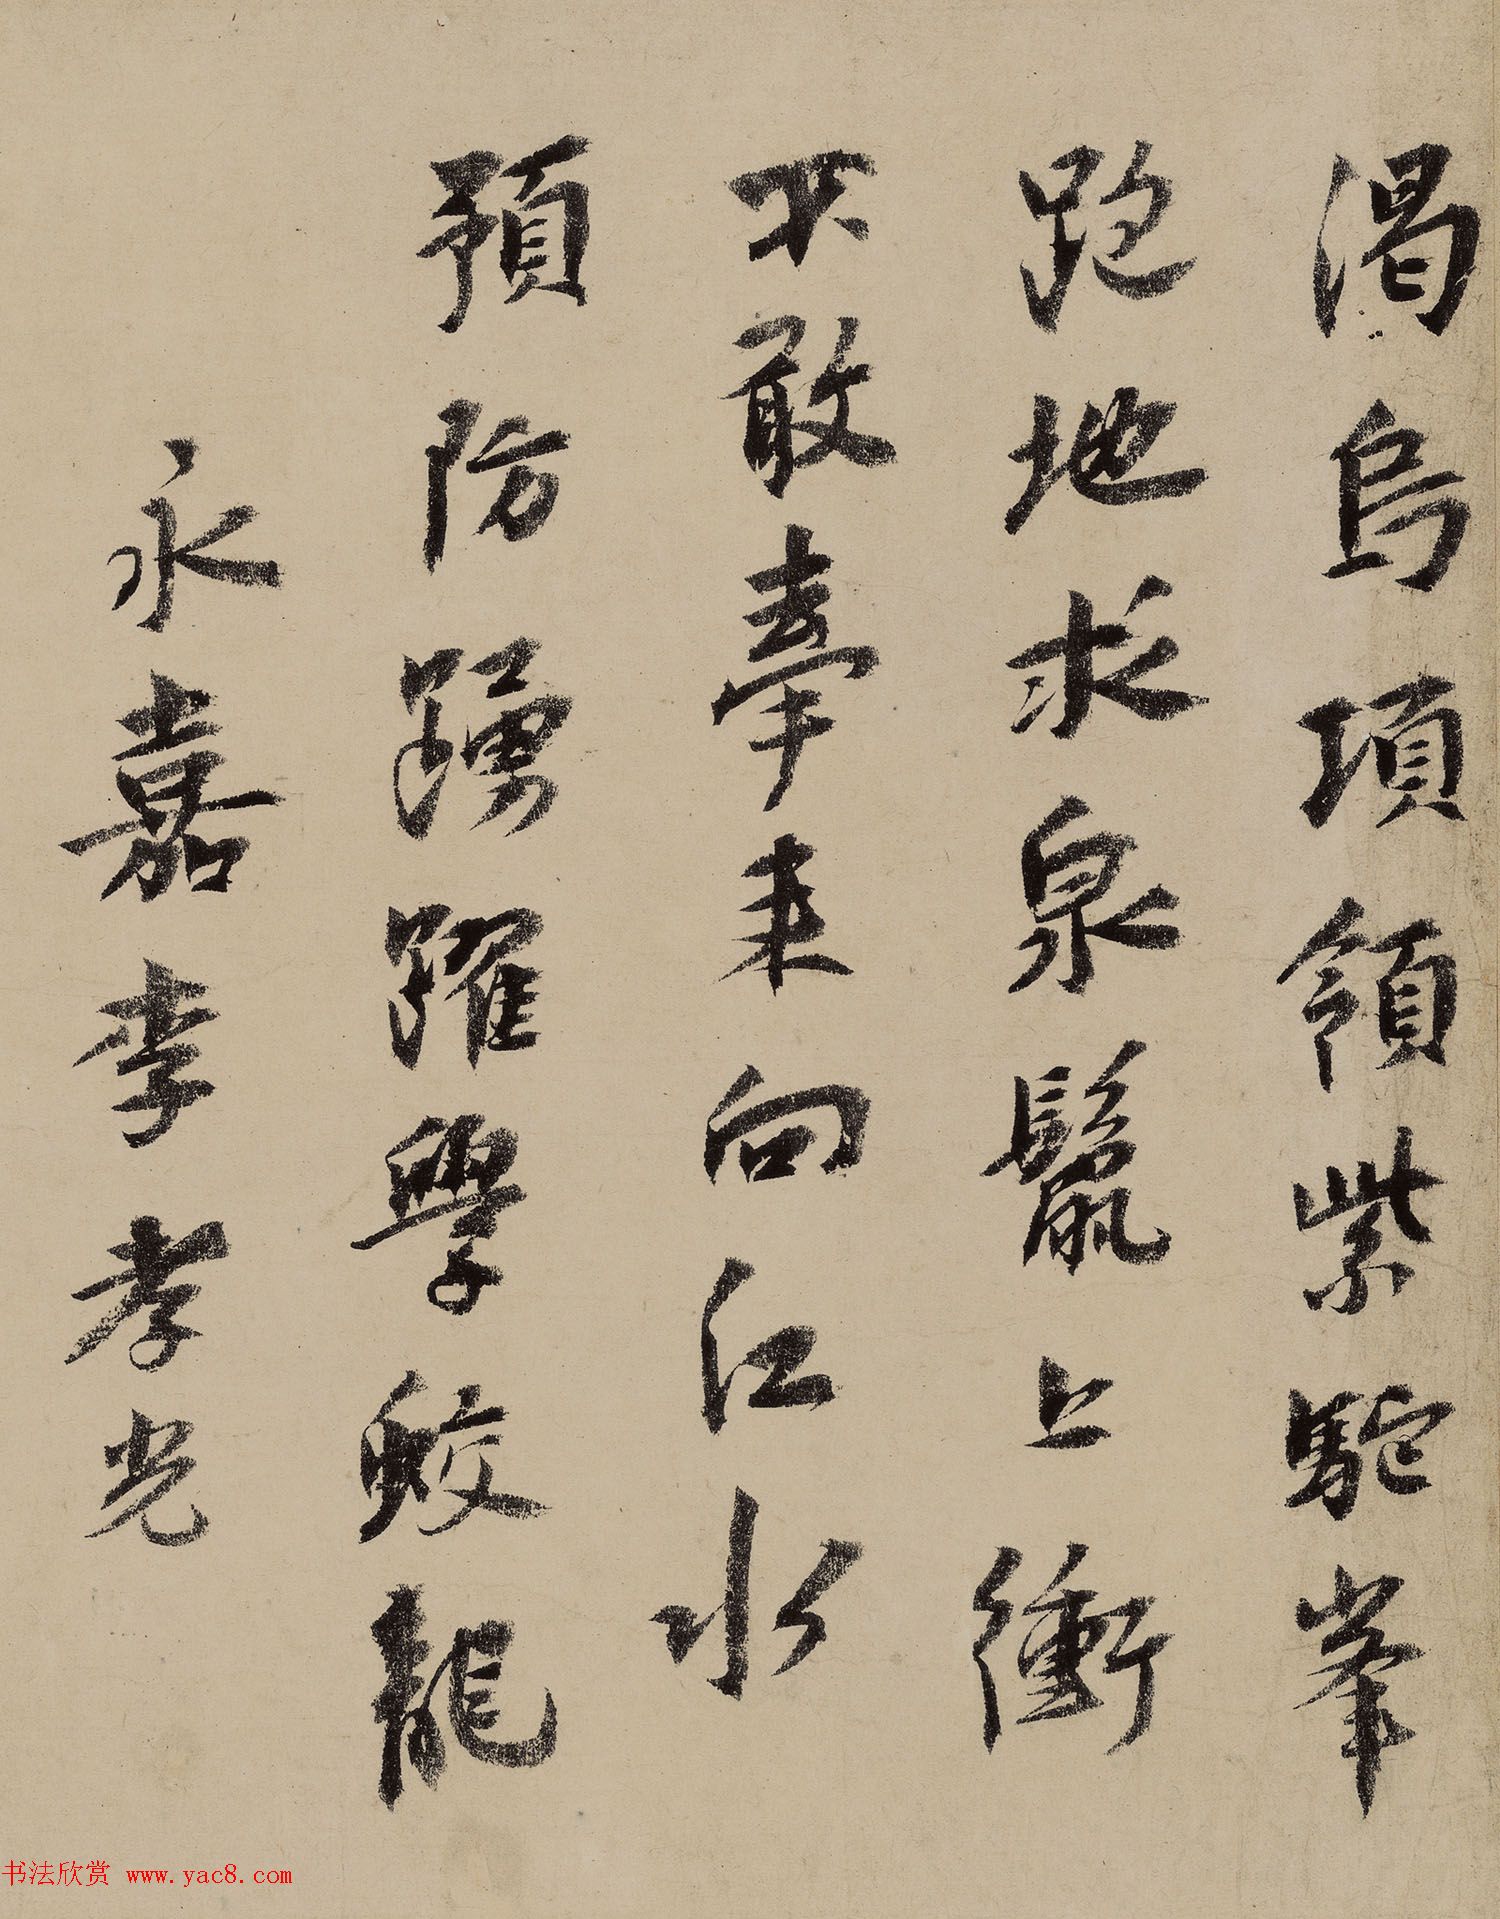 渴烏項領紫駝峯
跑地求泉鬛上衝
不敢牽来向江水
預防踴躍學鮫龍
永嘉李孝光
书法欣赏 www.yac8.com